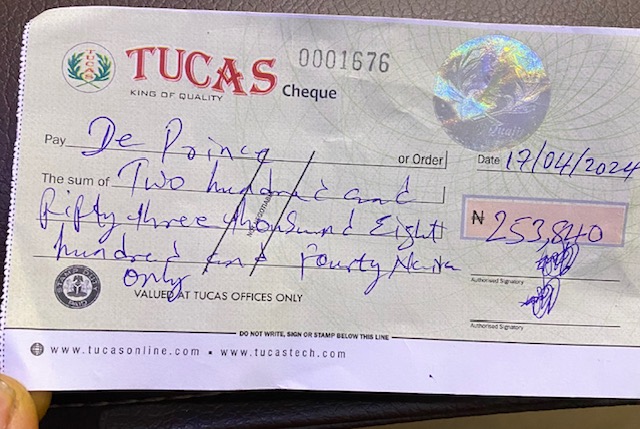 TUCAS
TUCAS 0001676
KING OF QUALITY Cheque
Pay De Prince or Order Date 17/04/2024
The sum of Two hundred and
fifty three thousand Eight ₦ 253,840
hundred and Fourty Naira
only
Authorised Signatory
VALUED AT TUCAS OFFICES ONLY
Authorised Signatory
DO NOT WRITE, SIGN OR STAMP BELOW THIS LINE
www.tucasonline.com ▪ www.tucastech.com